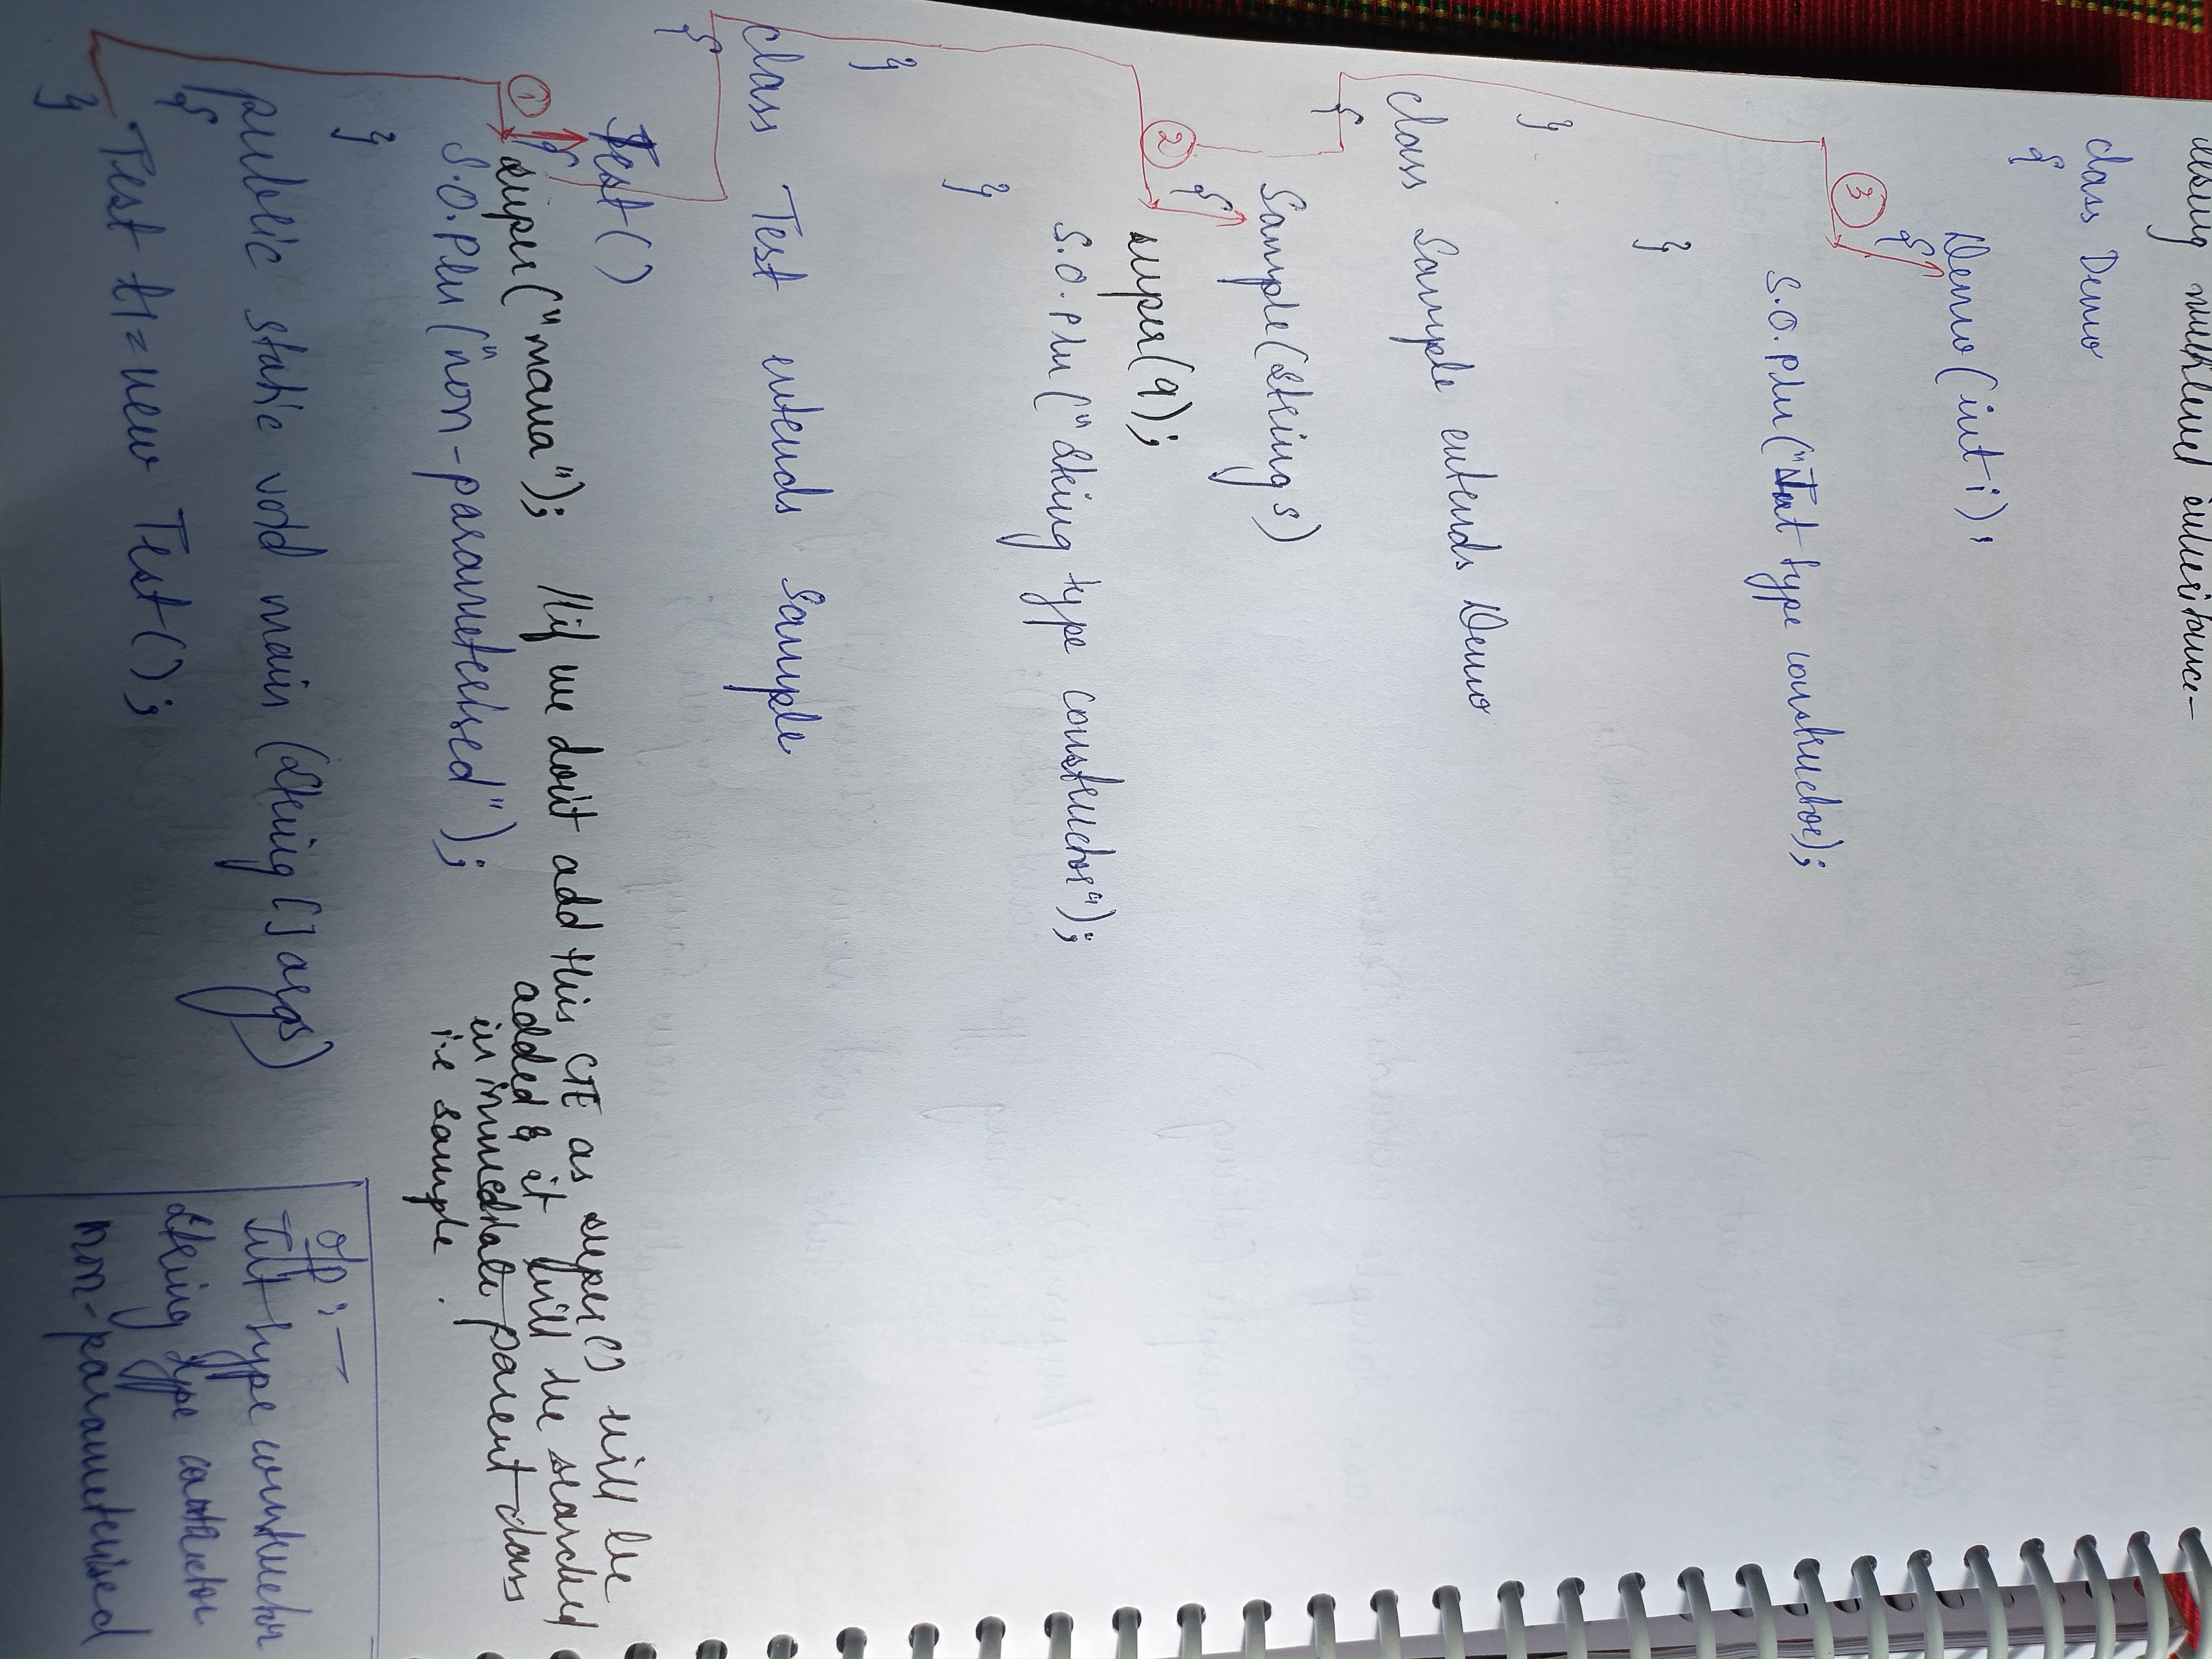 Using multilevel inheritance-
class Demo
{
Demo(int i);
{
3
S.O.Pln("Int type constructor);
}
}
class Sample extends Demo
{
Sample(String s)
{
2
super(9);
S.O.Pln("String type constructor");
}
}
class Test extends Sample
{
Test()
{
1
super("mana"); //if we don't add this CTE as super() will be
added & it will be searched
in immediate parent class
i.e sample.
S.O.Pln("non-parameterised");
}
public static void main (String [] args)
{
Test t1=new Test();
}
o/p :-
Int type constructor
String type
non-parameterised